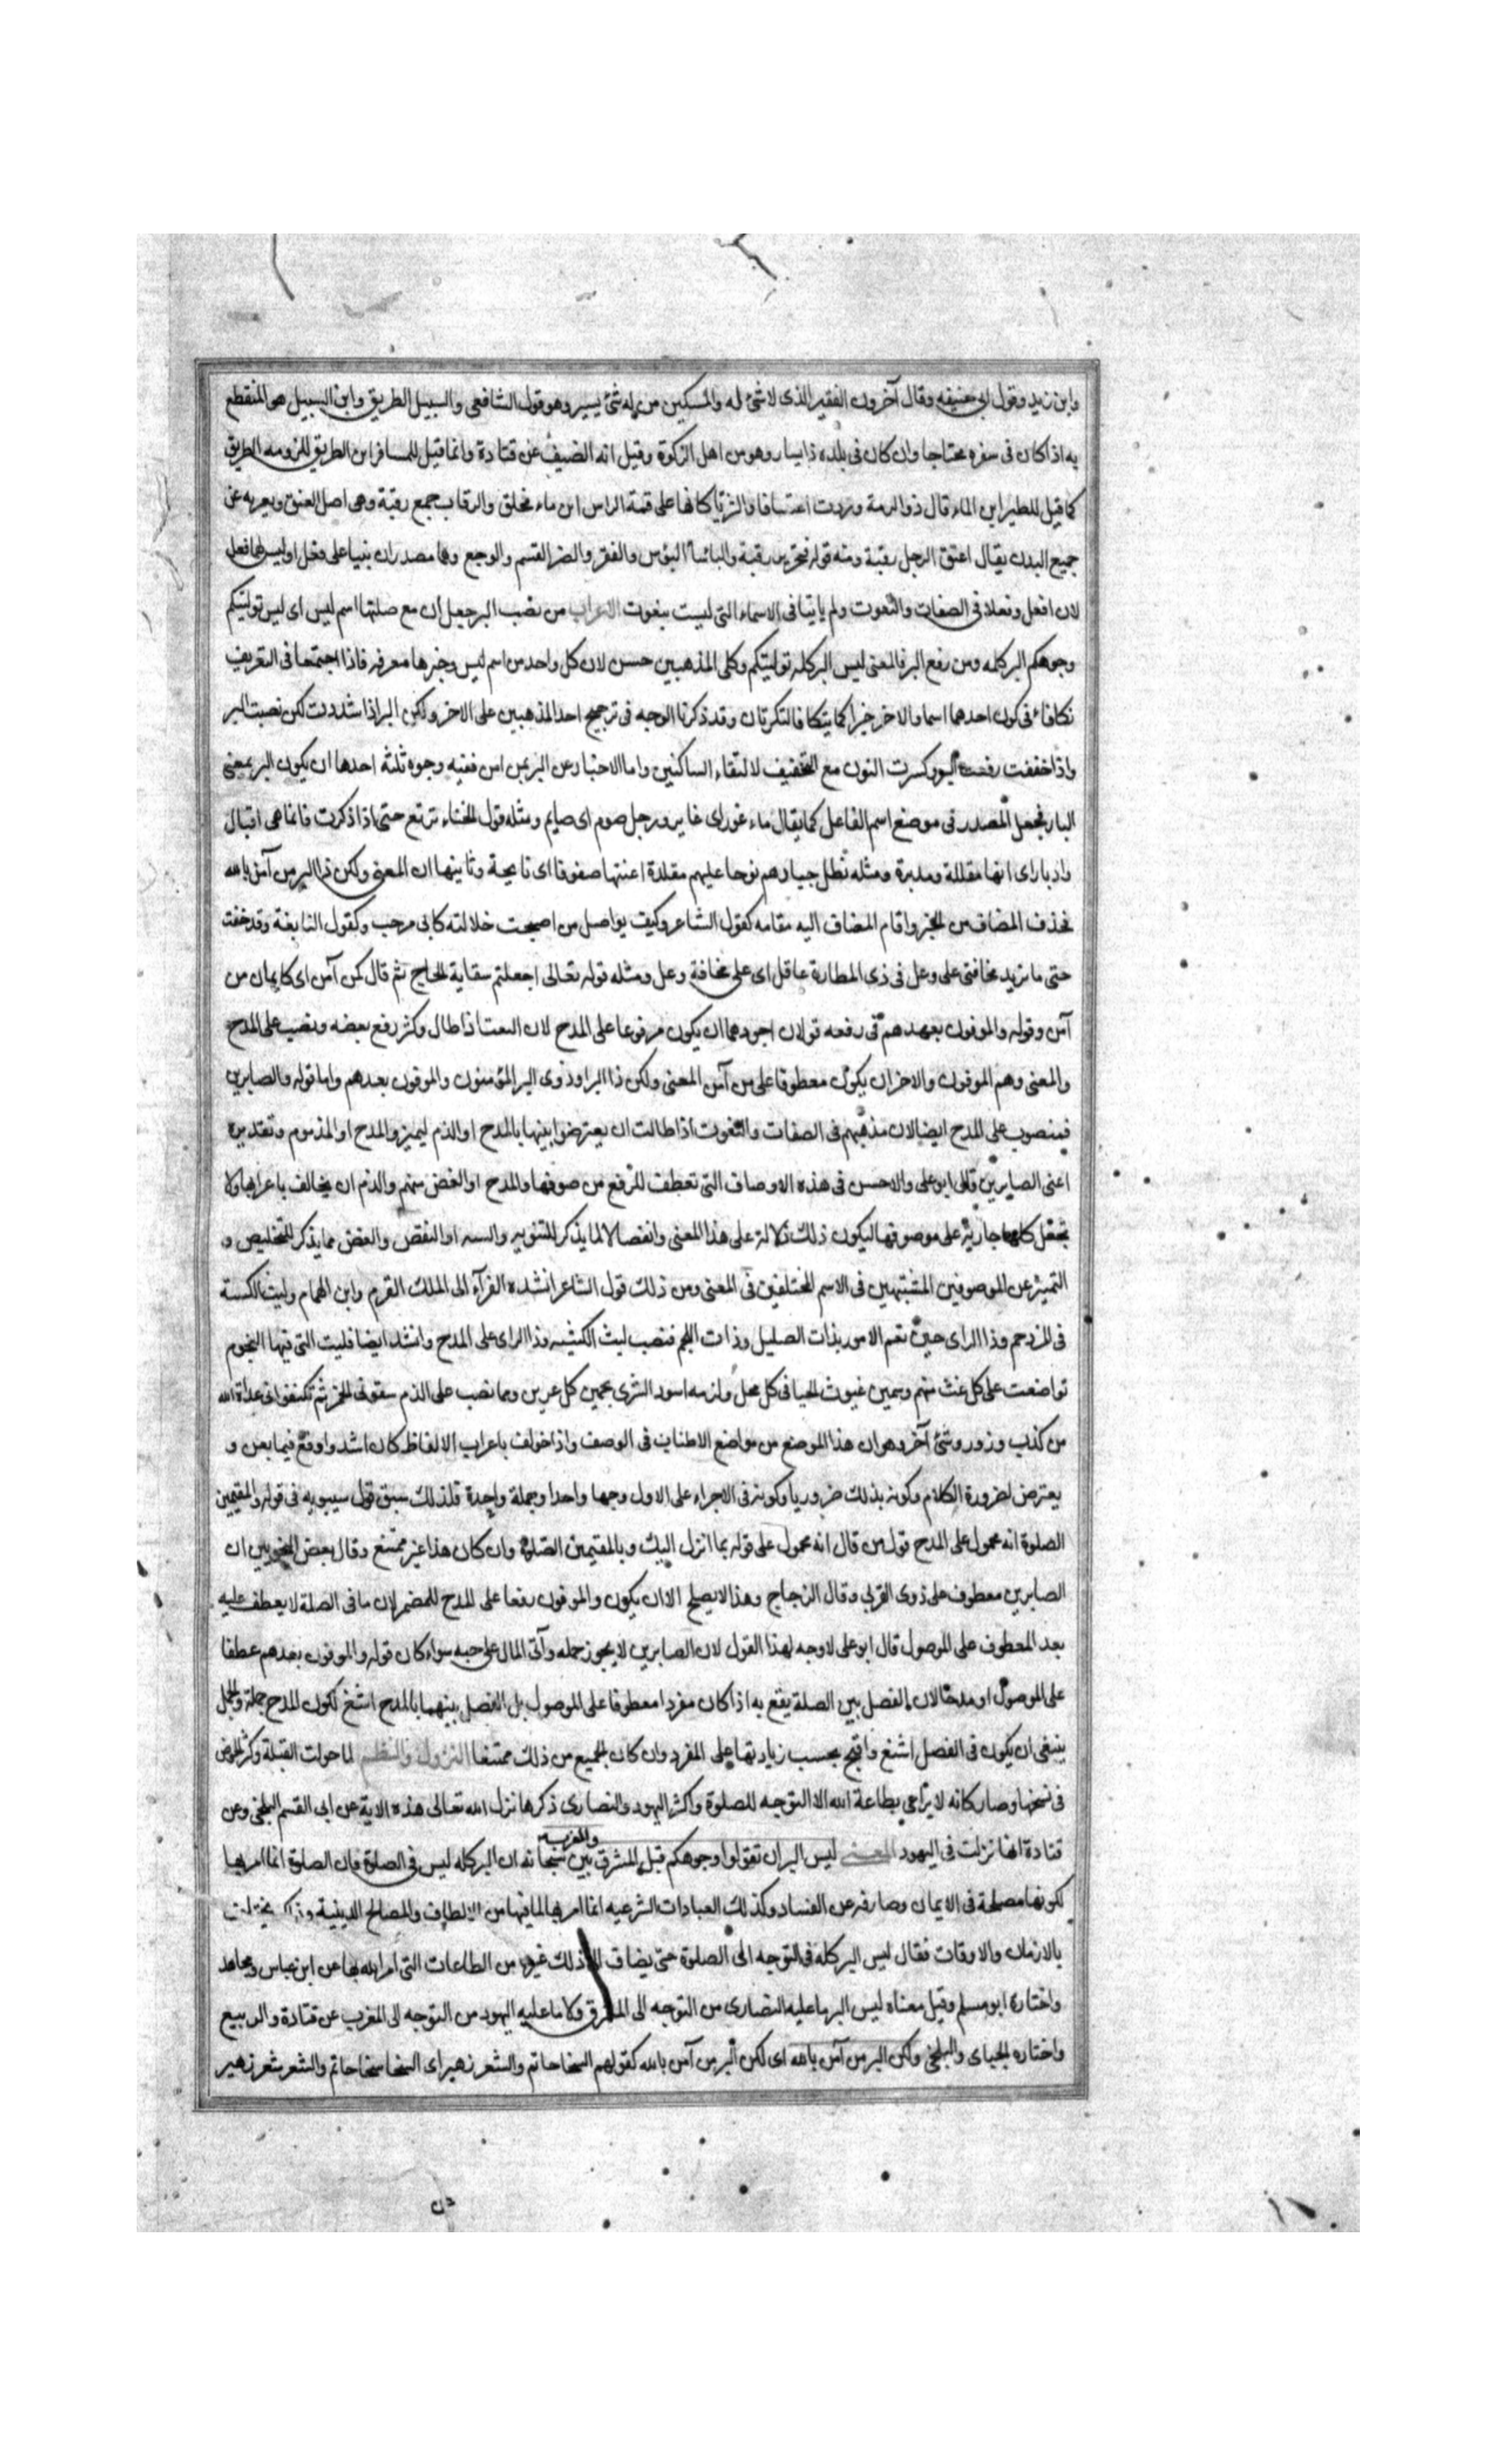 وابن زيد وقول ابي حنيفه وقال آخرون الفقير الذى لا شئ له والمسكين من له شئ يسير وهو قول الشافعى والسبيل الطريق وابن السبيل هو المنقطع
به اذا كان فى سفره محتاجا وان كان فى بلده ذا يسار وهو من اهل الزكوة وقيل انه الضيف عن قتادة وانما قيل للمسافر ابن الطريق للزومه الطريق
كما قيل للطير ابن الماء قال ذو الرمة وردت اعتسافا والثريا كانها على قمة الراس ابن ماء محلق والرقاب جمع رقبة وهى اصل العنق ويعبر به عن
جميع البدن يقال اعتق الرجل رقبة ومنه قوله فتحرير رقبة والباسأ البؤس والفقر والضر السقم والوجع وهما مصدران بنيا على فعلا وليس لهما افعل
لان افعل وفعلا فى الصفات والنعوت ولم ياتيا فى الاسماء التى ليست بنعوت الاعراب من نصب البر جعل ان مع صلتها اسم ليس اى ليس توليتكم
وجوهكم البر كله ومن رفع البر فالمعنى ليس البر كله توليتكم وكلى المذهبين حسن لان كل واحد من اسم ليس وخبرها معرفه فاذا اجتمعا فى التعريف
تكافاء فى كون احدهما اسما والاخر خبرا كما يتكافا النكرتان وقد ذكرنا الوجه فى ترجيح احد المذهبين على الاخر ولكن البر اذا شددت لكن نصبت البر
واذا خففت رفعت البر وكسرت النون مع التخفيف لالتقاء الساكنين واما الاخبار عن البر بمن امن ففيه وجوه ثلثة احدها ان يكون البر بمعنى
البار فجعل المصدر فى موضع اسم الفاعل كما يقال ماء غور اى غاير ورجل صوم اى صايم ومثله قول الخنساء ترتع حتى اذا ذكرت فانما هى اقبال
وادبار اى انها مقبلة ومدبرة ومثله تظل جيادهم نوحا عليهم مقلدة اعنتها صفوفا اى نايحة وثانيها ان المعنى ولكن ذا البر من آمن بالله
فحذف المضاف من الخبر واقام المضاف اليه مقامه كقول الشاعر وكيف يواصل من اصبحت خلالته كابى مرحب وكقول النابغة وقد خفت
حتى ما تزيد مخافتى على وعل فى ذى المطارة عاقل اى على مخافة وعل ومثله قوله تعالى اجعلتم سقاية الحاج ثم قال كمن آمن اى كايمان من
آمن وقوله والموفون بعهدهم فى رفعه قولان اجودهما ان يكون مرفوعا على المدح لان النعت اذا طال وكثر رفع بعضه ونصب على المدح
والمعنى وهم الموفون والاخر ان يكون معطوفا على من آمن المعنى ولكن ذا البر او ذوى البر المؤمنون والموفون بعهدهم واما قوله والصابرين
فمنصوب على المدح ايضا لان مذهبهم فى الصفات والنعوت اذا طالت ان يعترضوا بينها بالمدح او الذم ليميزوا المدح او المذموم وتقديره
اعنى الصابرين قال ابو على والاحسن فى هذه الاوصاف التى تعطف للرفع من موصوفها والمدح او الغض منهم والذم ان يخالف باعرابها ولا
تجعل كلها جارية على موصوفها ليكون ذلك دلالة على هذا المعنى وانفصالا لما يذكر للتنويه والتنبيه او النقص والغض مما يذكر للتخليص و
التمييز عن الموصوفين المشتبهين فى الاسم المختلفين فى المعنى ومن ذلك قول الشاعر انشده الفرآء الى الملك القرم وابن الهمام وليث الكتيبة
فى المزدحم وذا الراى حين تغم الامور بذات الصليل وذات اللجم فنصب ليث الكتيبه وذا الراى على المدح وانشد ايضا فليت التى فيها النجوم
تواضعت على كل غث منهم وسمين غيوث الحيا فى كل محل ولزبه اسود الشرى يحمين كل عرين ومما نصب على الذم سقونى الخمر ثم تكنفونى عداة الله
من كذب وزور وشئ آخر وهو ان هذا الموضع من مواضع الاطناب فى الوصف واذا خولف باعراب الالفاظ كان اشد واوقع فيما يعن و
يعترض لضرورة الكلام وكونه بذلك ضروريا وكونه فى الاجراء على الاول وجها واحدا وجملة واحدة فلذلك سبق قول سيبويه فى قوله والمقيمين
الصلوة انه محمول على المدح قول من قال انه محمول على قوله بما انزل اليك وبالمقيمين الصلوة وان كان هذا غير ممتنع وقال بعض النحويين ان
الصابرين معطوف على ذوى القربى وقال الزجاج وهذا لا يصلح الا ان يكون والموفون رفعا على المدح للمضمر لان ما فى الصلة لا يعطف عليه
بعد المعطوف على الموصول قال ابو على لا وجه لهذا القول لان الصابرين لا يجوز حمله وآتى المال على حبه سواء كان قوله والموفون بعدهم عطفا
على الموصول او مدحا لان الفصل بين الصلة يقع به اذا كان مفردا معطوفا على الموصول بل الفصل بينهما بالمدح اشنع لكون المدح جملة والجمل
ينبغى ان يكون فى الفصل اشنع واقبح بحسب زيادتها على المفرد وان كان الجميع من ذلك ممتنعا النزول والنظم لما حولت القبلة وكثر الخوض
فى نسخها وصار كانه لا يراعى بطاعة الله الا التوجه للصلوة واكثر اليهود والنصارى ذكرها نزل الله تعالى هذه الاية عن ابى القسم البلخى وعن
قتادة انها نزلت فى اليهود المعنى ليس البر ان تولوا وجوهكم قبل المشرق والمغرب بين سبحانه ان البر كله ليس فى الصلوة فان الصلوة انما امر بها
لكونها مصلحة فى الايمان وصارفه عن الفساد وكذلك العبادات الشرعيه انما امر بها لما فيها من الالطاف والمصالح الدينية وذلك يختلف
بالازمان والاوقات فقال ليس البر كله فى التوجه الى الصلوة حتى يضاف الى ذلك غيره من الطاعات التى امر الله بها عن ابن عباس ومجاهد
واختاره ابو مسلم وقيل معناه ليس البر ما عليه النصارى من التوجه الى المشرق ولا ما عليه اليهود من التوجه الى المغرب عن قتادة والربيع
واختاره الجباى والبلخى ولكن البر من آمن بالله اى لكن البر بر من آمن بالله كقولهم السخا حاتم والشعر زهير اى السخا سخا حاتم والشعر شعر زهير